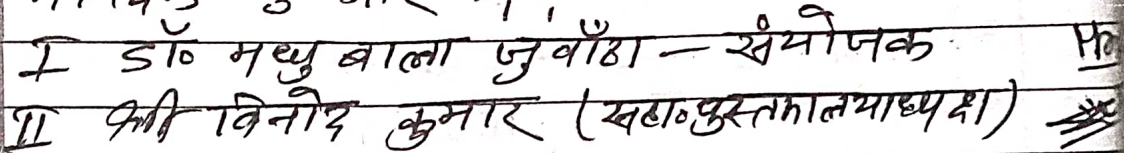 I डॉ० मधु बाला जुवाँठा - संयोजक
II श्री विनोद कुमार (सहा०पुस्तकालयाध्यक्ष)